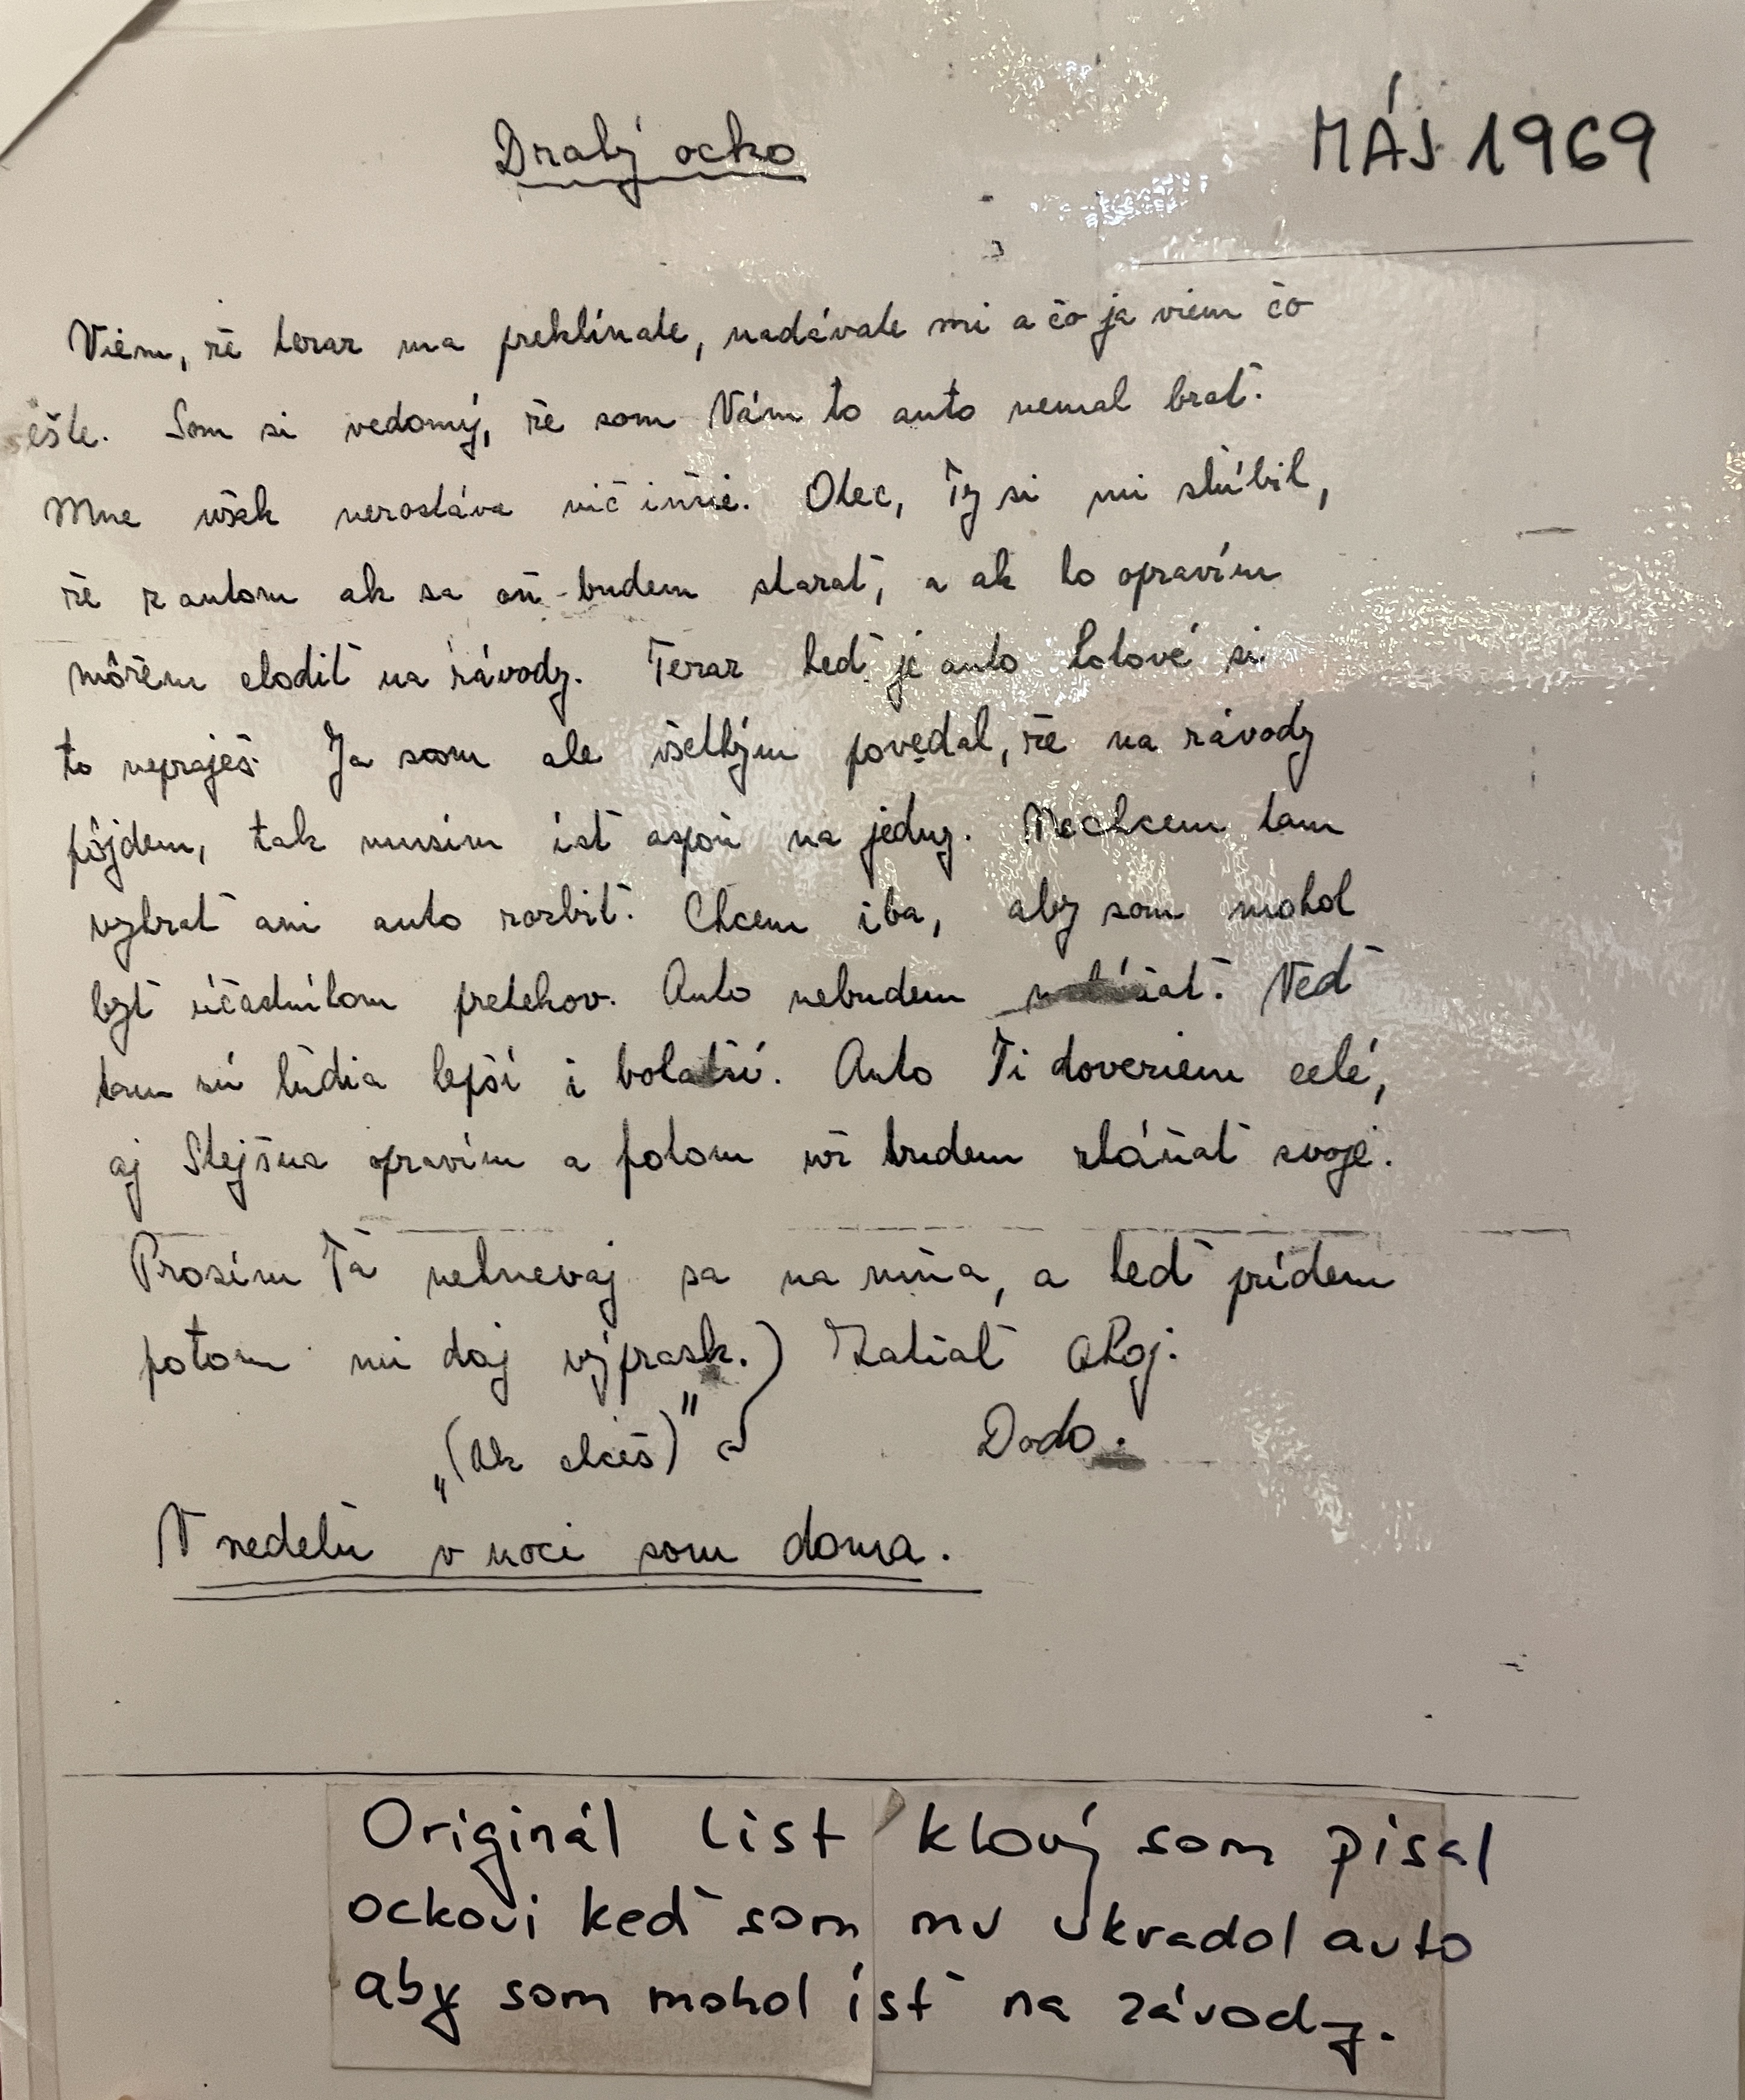 Drahý ocko
MÁJ 1969
Viem, že teraz ma preklínate, nadávate mi a čo ja viem čo
ešte. Som si vedomý, že som Vám to auto nemal brať.
Mne však nezostáva nič iného. Otec, Ty si mi slúbil,
že z autom ak sa oň budem starať, a ak ho opravím
môžem chodiť na závody. Teraz keď je auto hotové si
to nepraješ. Ja som ale všetkým povedal, že na závody
pôjdem, tak musím ísť aspoň na jedny. Nechcem tam
vyhrať ani auto rozbiť. Chcem iba, aby som mohol
byť účastníkom pretekov. Auto nebudem Veď
tam sú ľudia lepší i bohatší. Auto Ti doveziem celé,
aj Stejšna opravím a potom už budem zháňať svoje.
Prosím Ťa nehnevaj sa na mňa, a keď prídem
potom mi daj výprask.) Zatiaľ ahoj.
„(Ak chceš)" Dodo.
V nedeľu v noci som doma.
Originál list ktorý som písal
ockovi keď som mu ukradol auto
aby som mohol ísť na závody.